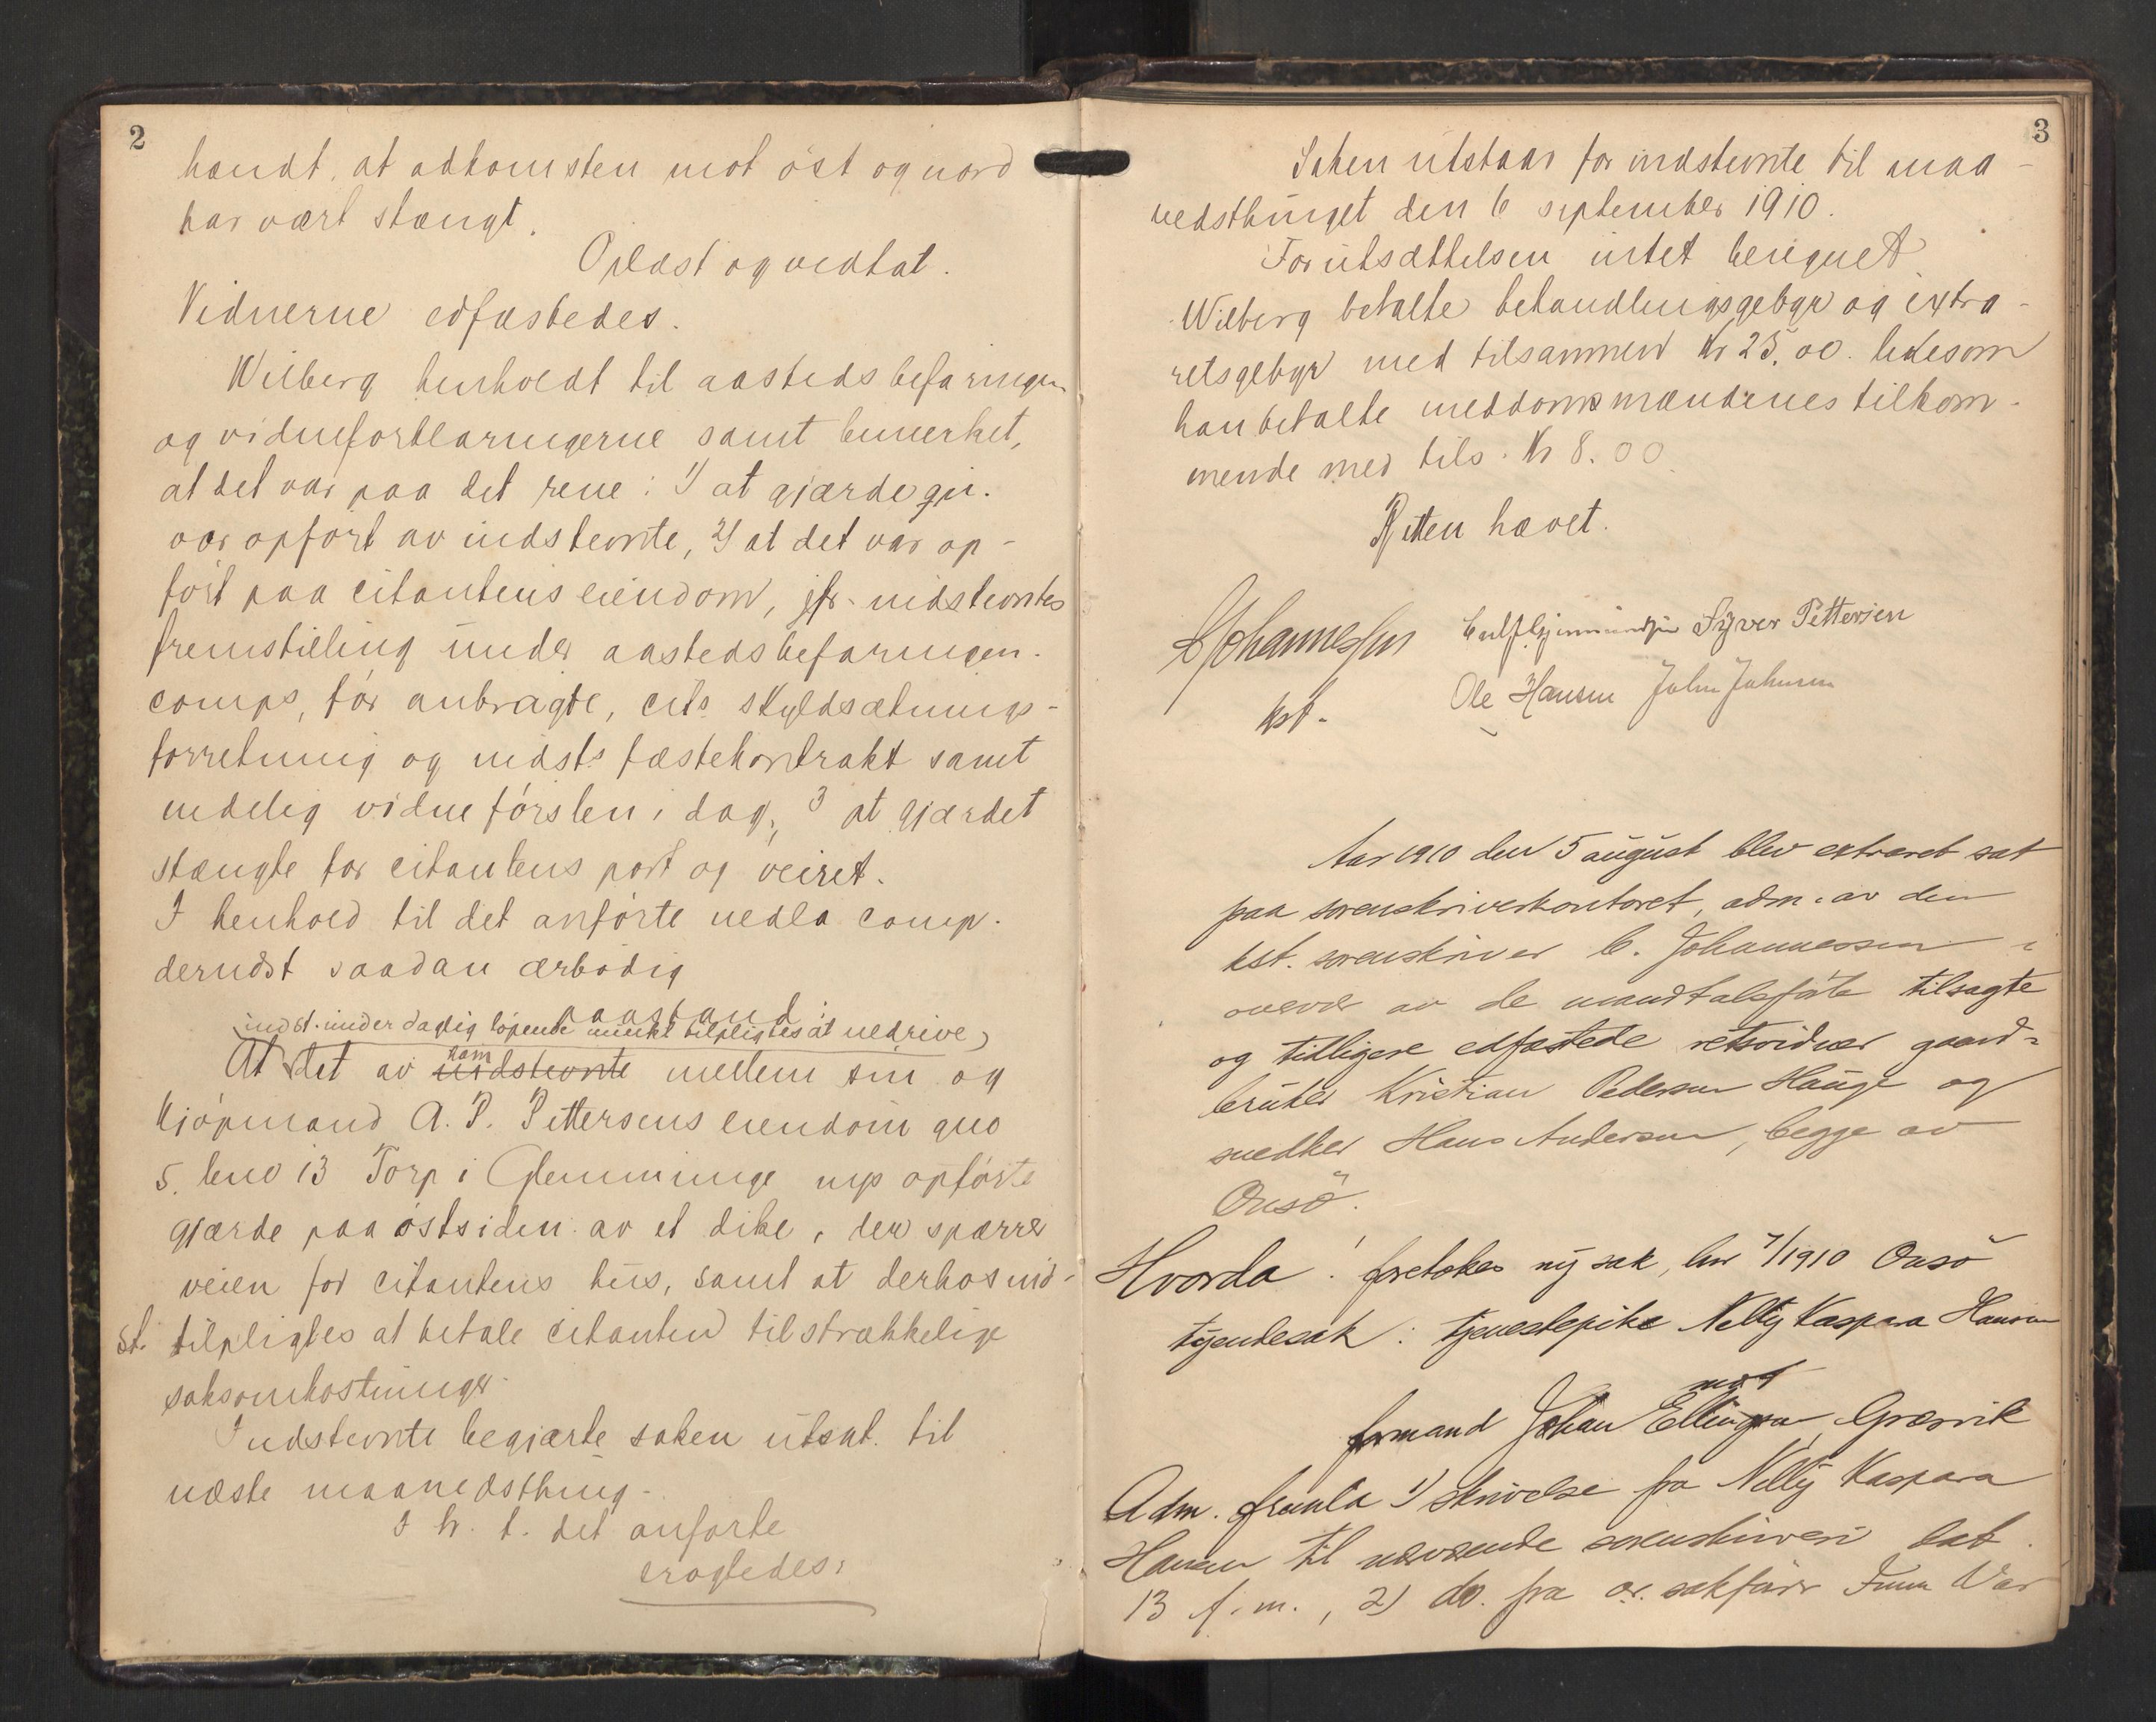 2
hændt, at adkomsten mot öst og nord
har vært stængt.
Oplæst og vedtat.
Vidnerne edfæstedes.
Wilberg henholdt til aastedsbefaringen
og vidneforklaringerne samt bemerket,
at det var paa det rene: 1) at gjærde
var opfört av indstevnte, 2) at det var op-
fört paa citantens eiendom, jfr. indstevntes
fremstilling under aastedsbefaringen.
comps, før anbragte, cits skyldsætnings-
forretning og indsts fæstekontrakt samt
endelig vidneförslen i dag, 3 at gjærdet
stængte for citantens port og veiret.
I henhold til det anförte nedla comp.
dernæst saadan ærbödig
paastand:
indst. under daglig löpende mulkt tilpligtes at nedrive,
At det av ham indstevnte mellem sin og
kjöpmand A. P. Pettersens eiendom gno
5. bno 13 Torp i Glemminge nys opförte
gjærde paa östsiden av et dike, der spærrer
veien for citantens hus, samt at derhos ind-
st. tilpligtes at betale citanten tilstrækkelige
saksomkostninger.
Indstevnte begjærte saken utsat til
næste maanedsthing.
I h. t. det anförte
eragtedes:
3
Saken utstaar for indstevnte til maa-
nedsthinget den 6 september 1910.
For utsættelsen intet beregnet
Wilberg betalte behandlingsgebyr og extra-
retsgebyr med tilsammen kr 25,00. likesom
han betalte meddomsmændenes tilkom-
mende med tils. kr 8.00.
Retten hævet.
Johannessen
kst.
Syver Pettersen
Ole Hansen John Johnsen
Aar 1910 den 5 august blev extraret sat
paa sorenskriverkontoret, adm. av den
kst. sorenskriver C. Johannessen i
overvær av de mandtalsförte tilsagte
og tidligere edfæstede retsvidner gaard-
bruker Kristian Pedersen Hauge og
snedker Hans Andersen, begge av
Onsö.
Hvorda: foretokes ny sak, lnr 7/1910 Onsö
tyendesak: tjenestepike Nelly Kaspara Hansen
mot
formand Johan Ellingsen, Græsvik
Adm. fremla 1) skrivelse fra Nelly Kaspara
Hansen til nærværende sorenskriveri dat.
13 f. m., 2) do. fra or. sakförer Finn War